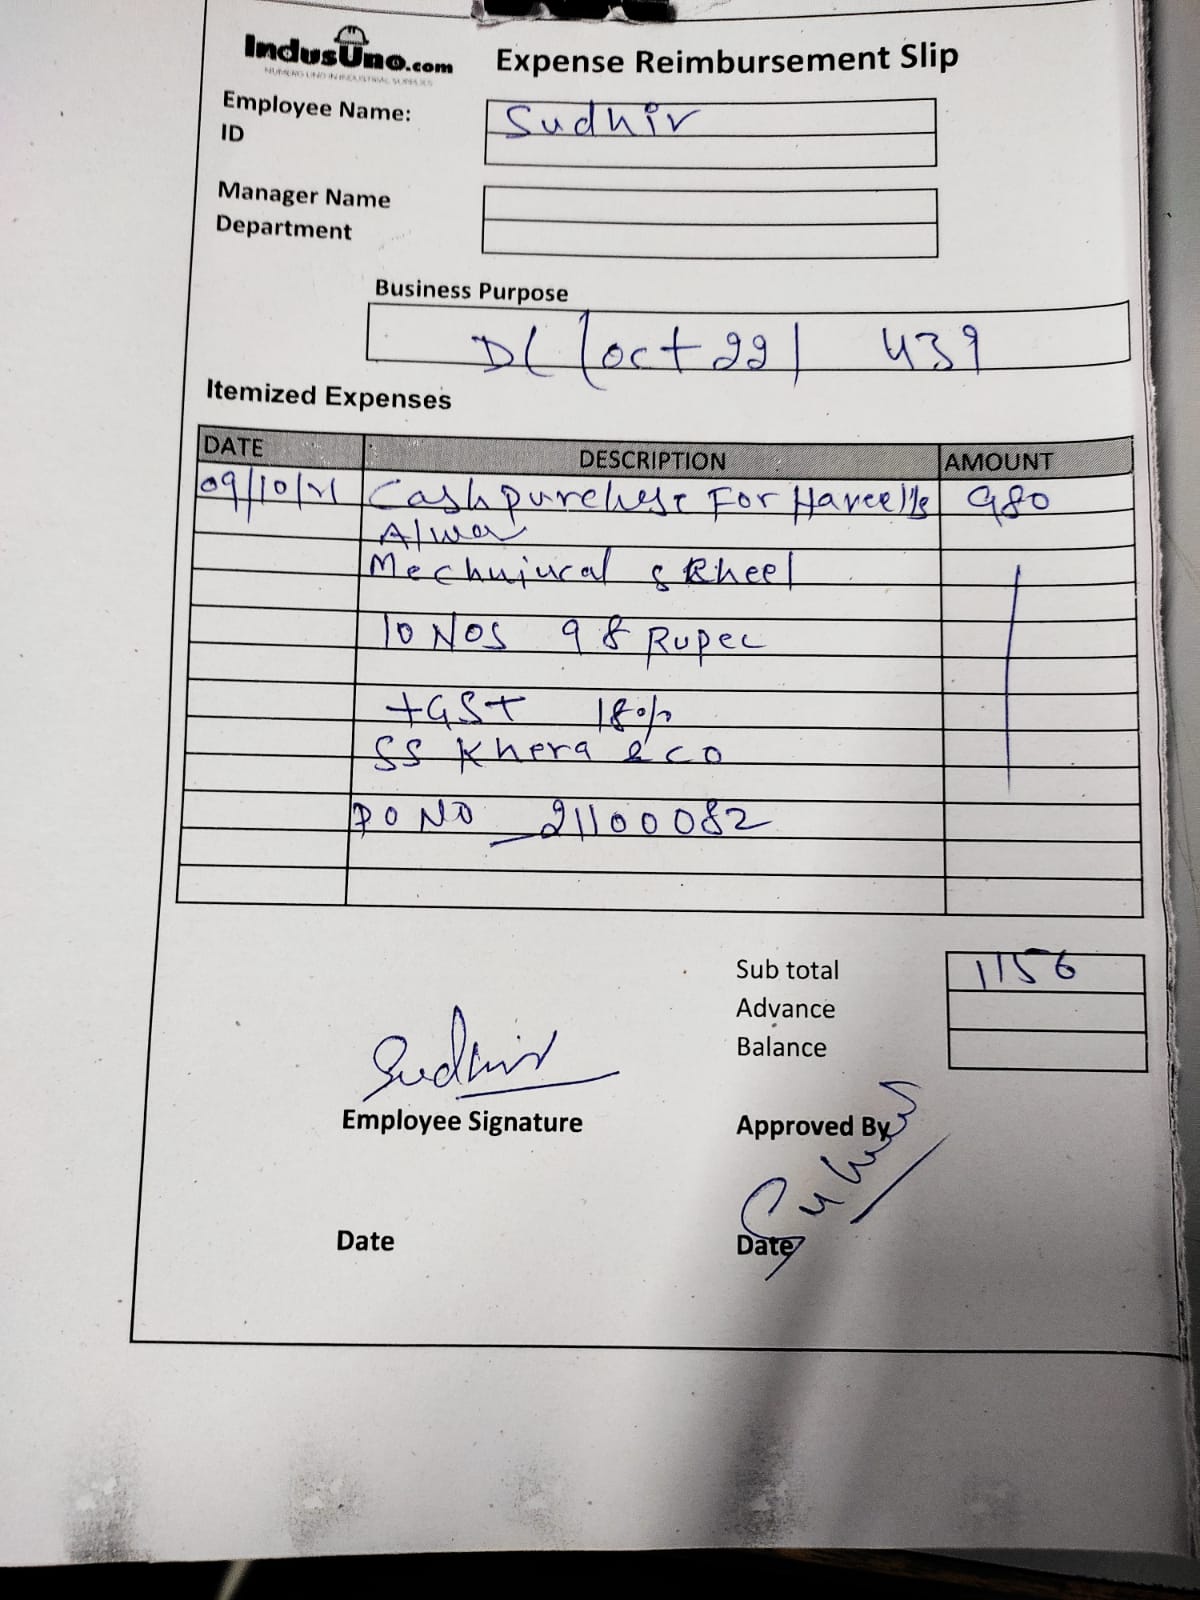 IndusUno.com
NUMERO UNO IN INDUSTRIAL SUPPLIES
Expense Reimbursement Slip
Employee Name: Sudhir
ID
Manager Name
Department
Business Purpose
DL/Oct 22/ 439
Itemized Expenses
DATE DESCRIPTION AMOUNT
09/10/21 Cash purchese For Havells 980
Alwar
10 NOS 98 Rupee
+GST 18%
SS Khera & CO
PO NO 21100082
Sub total 1156
Advance
Balance
Sudhir
Employee Signature
Approved By
Date
Date